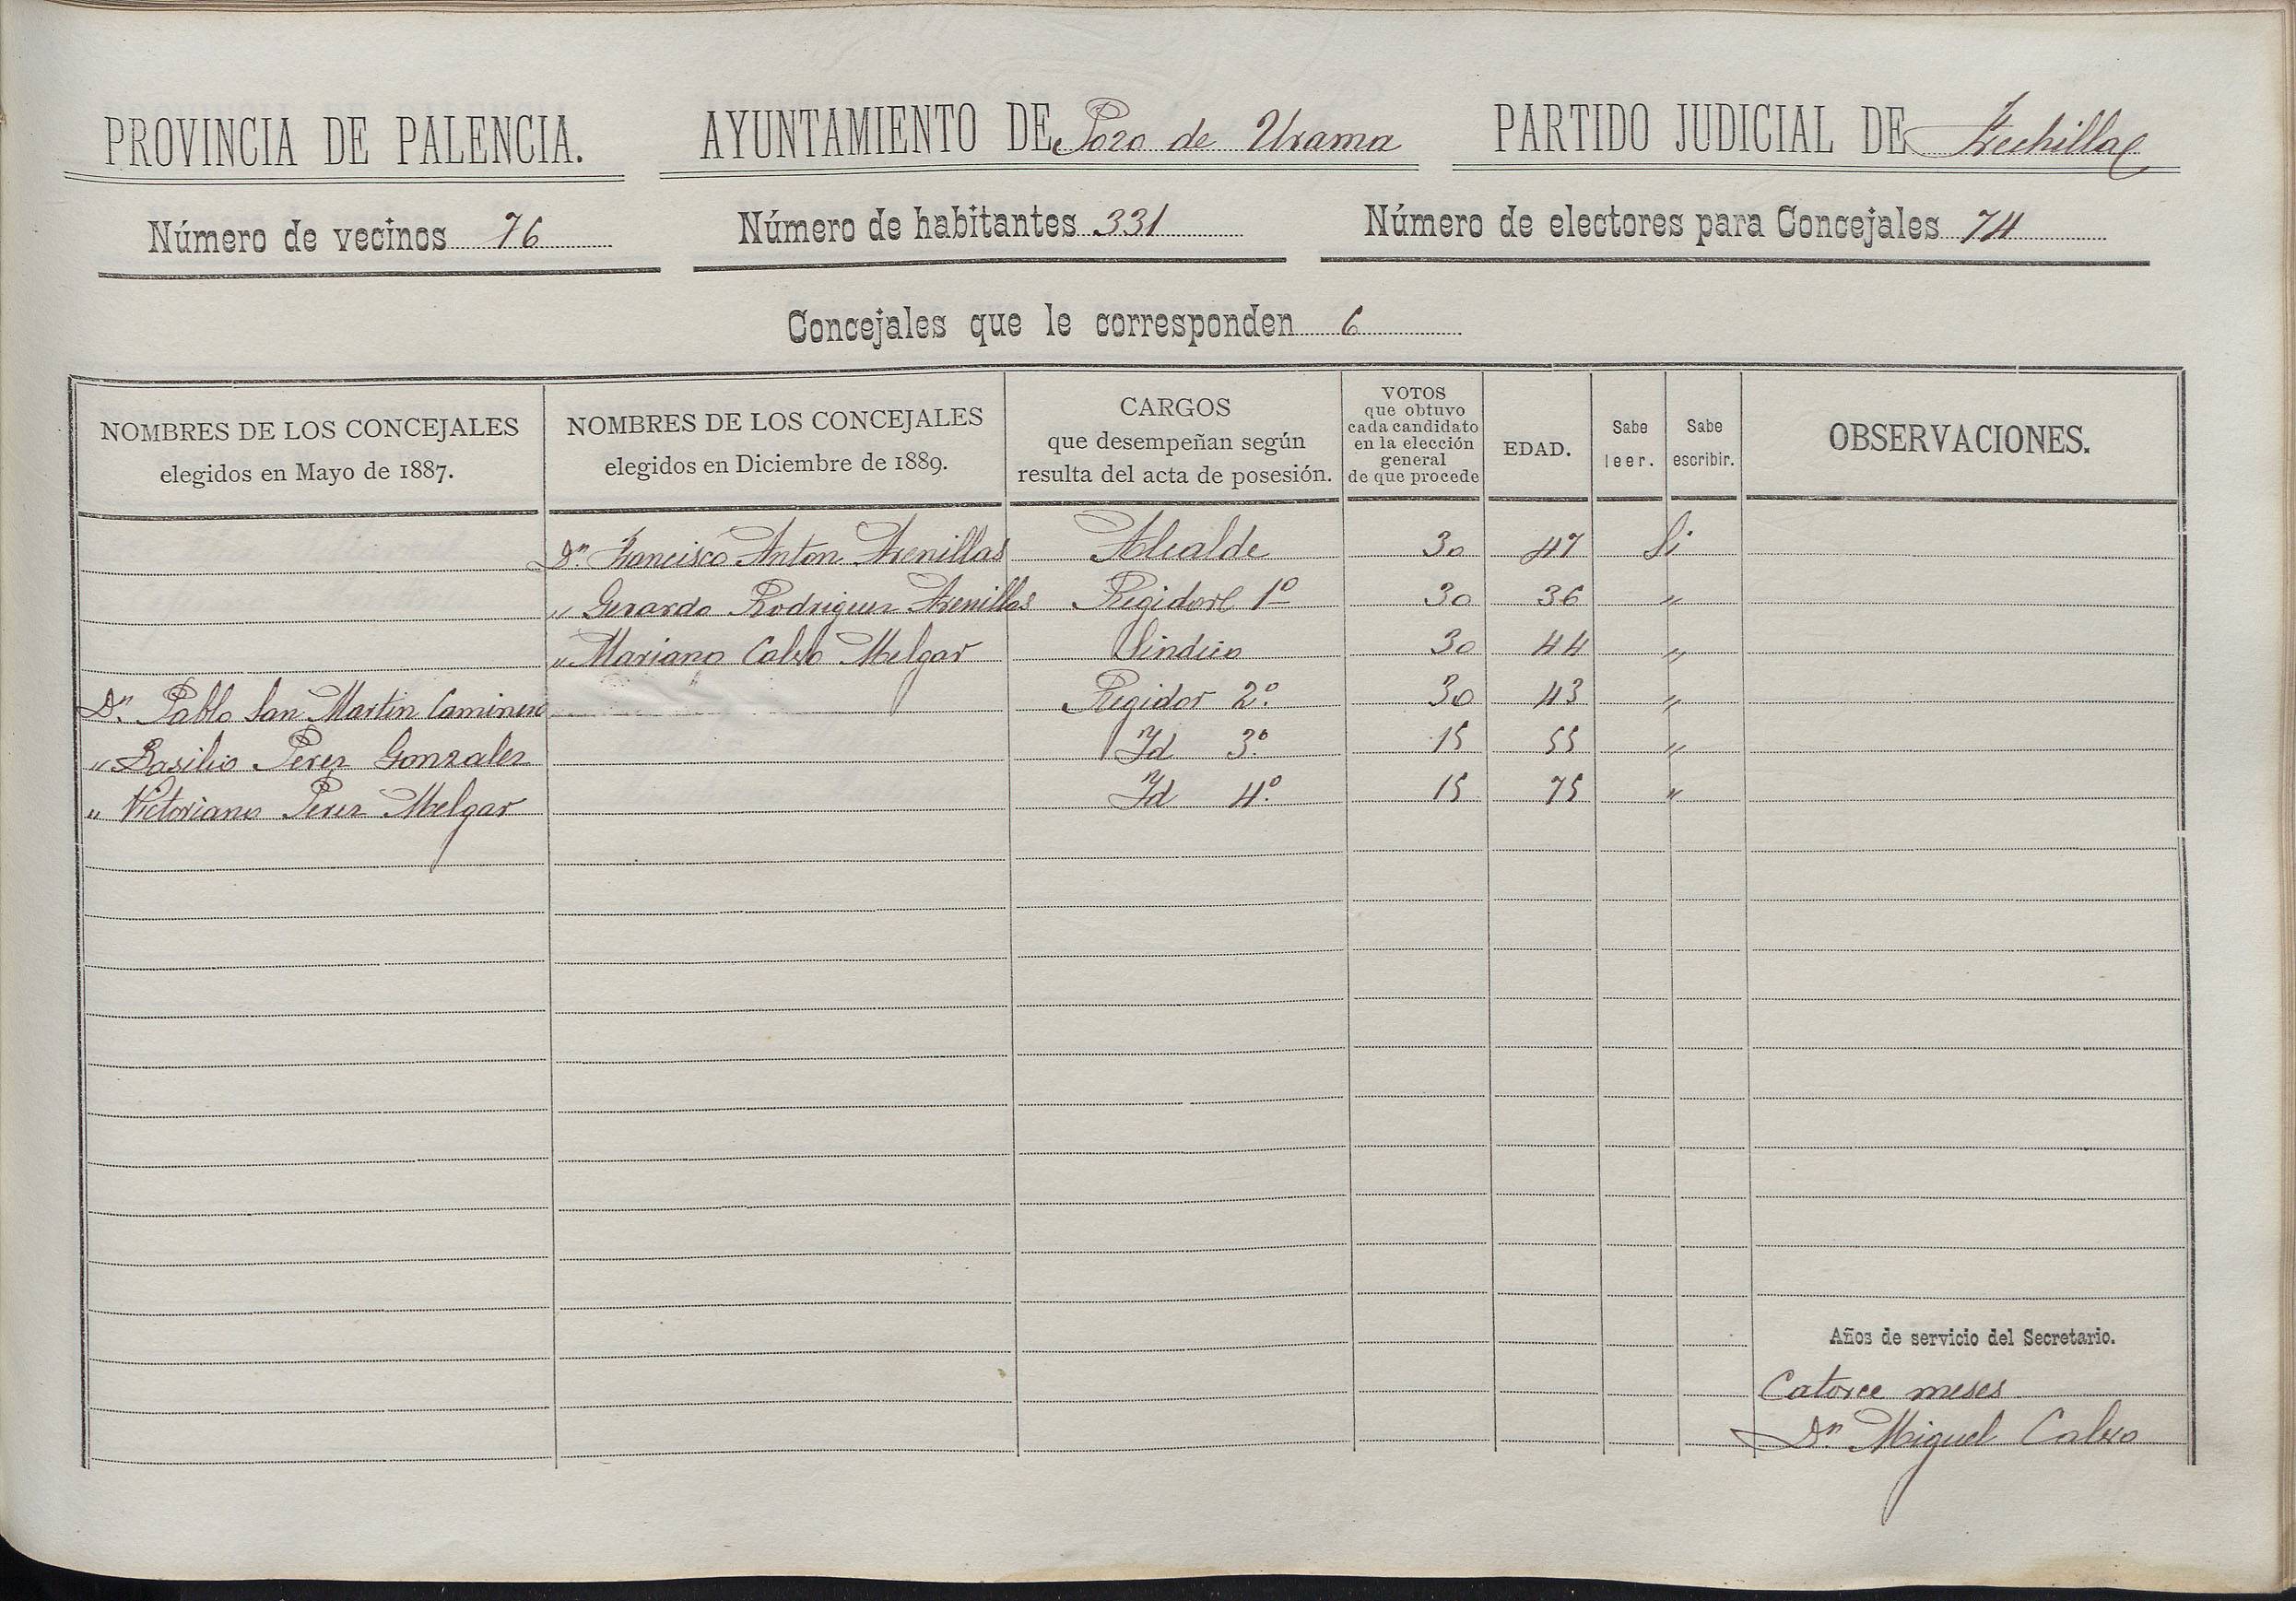 PROVINCIA DE PALENCIA. AYUNTAMIENTO DE Pozo de Urama PARTIDO JUDICIAL DE Frechilla
Número de vecinos 76 Número de habitantes 331 Número de electores para Concejales 74
Concejales que le corresponden 6
NOMBRES DE LOS CONCEJALES elegidos en Mayo de 1887. NOMBRES DE LOS CONCEJALES elegidos en Diciembre de 1889. CARGOS que desempeñan según resulta del acta de posesión. VOTOS que obtuvo cada candidato en la elección general de que procede EDAD. Sabe leer. Sabe escribir. OBSERVACIONES.
Dn. Francisco Anton Arenillas Alcalde 30 47 Si
" Gerardo Rodriguez Arenillas Regidor 1º 30 36 "
" Mariano Calvo Melgar Sindico 30 44 "
Dn. Pablo San Martin Caminero Regidor 2º 30 43 "
" Basilio Perez Gonzalez Id 3º 15 55 "
" Victoriano Perez Melgar Id 4º 15 75 "
Años de servicio del Secretario.
Catorce meses
Dn Miguel Calvo